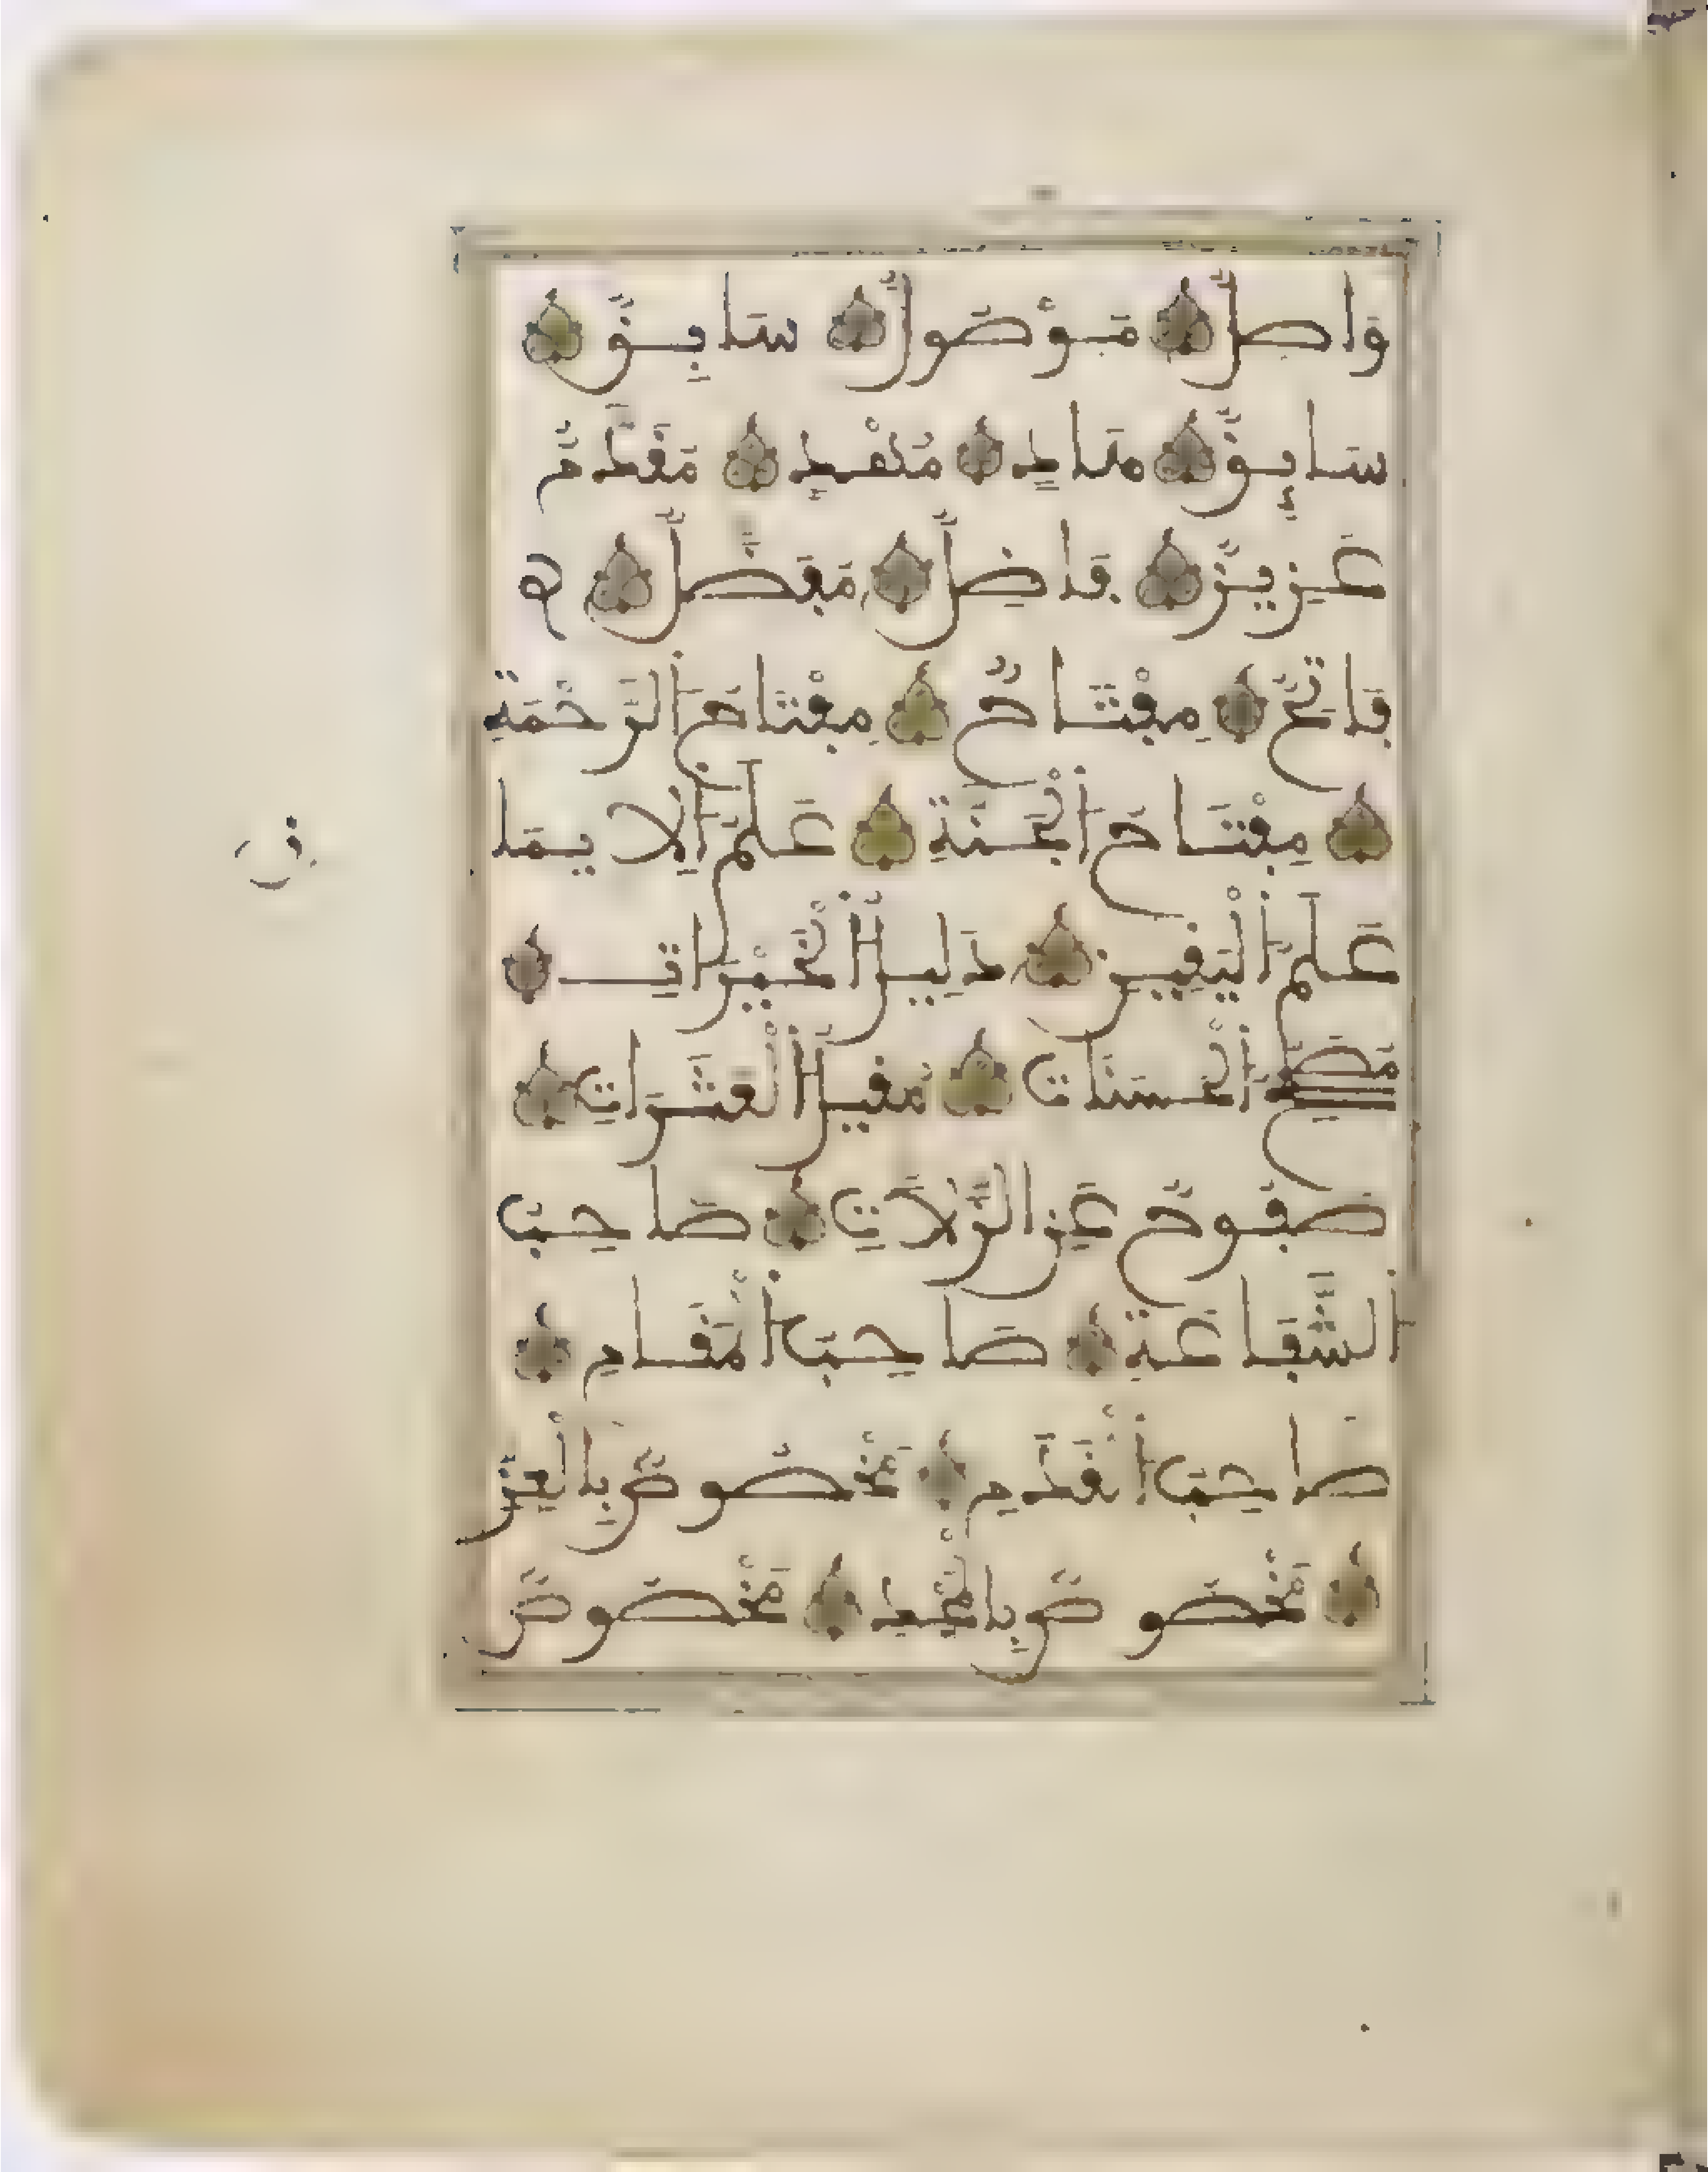 وَاصِلٌ مَوْصُولٌ سَابِقٌ
سَابِقٌ هَادٍ مُهْدٍ مُقَدَّمٌ
عَزِيزٌ فَاضِلٌ مُفَضَّلٌ
فَاتِحٌ مِفْتَاحٌ مِفْتَاحُ الرَّحْمَةِ
مِفْتَاحُ الْجَنَّةِ عَلَمُ الْإِيمَا
عَلَمُ الْيَقِينِ دَلِيلُ الْخَيْرَاتِ
مُصَحِّحُ الْحَسَنَاتِ مُقِيلُ الْعَثَرَاتِ
صَفُوحٌ عَنِ الزَّلَّاتِ صَاحِبُ
الشَّفَاعَةِ صَاحِبُ الْمَقَامِ
صَاحِبُ الْقَدَمِ مَخْصُوصٌ بِالْعِزِّ
مَخْصُوصٌ بِالْمَجْدِ مَخْصُوصٌ